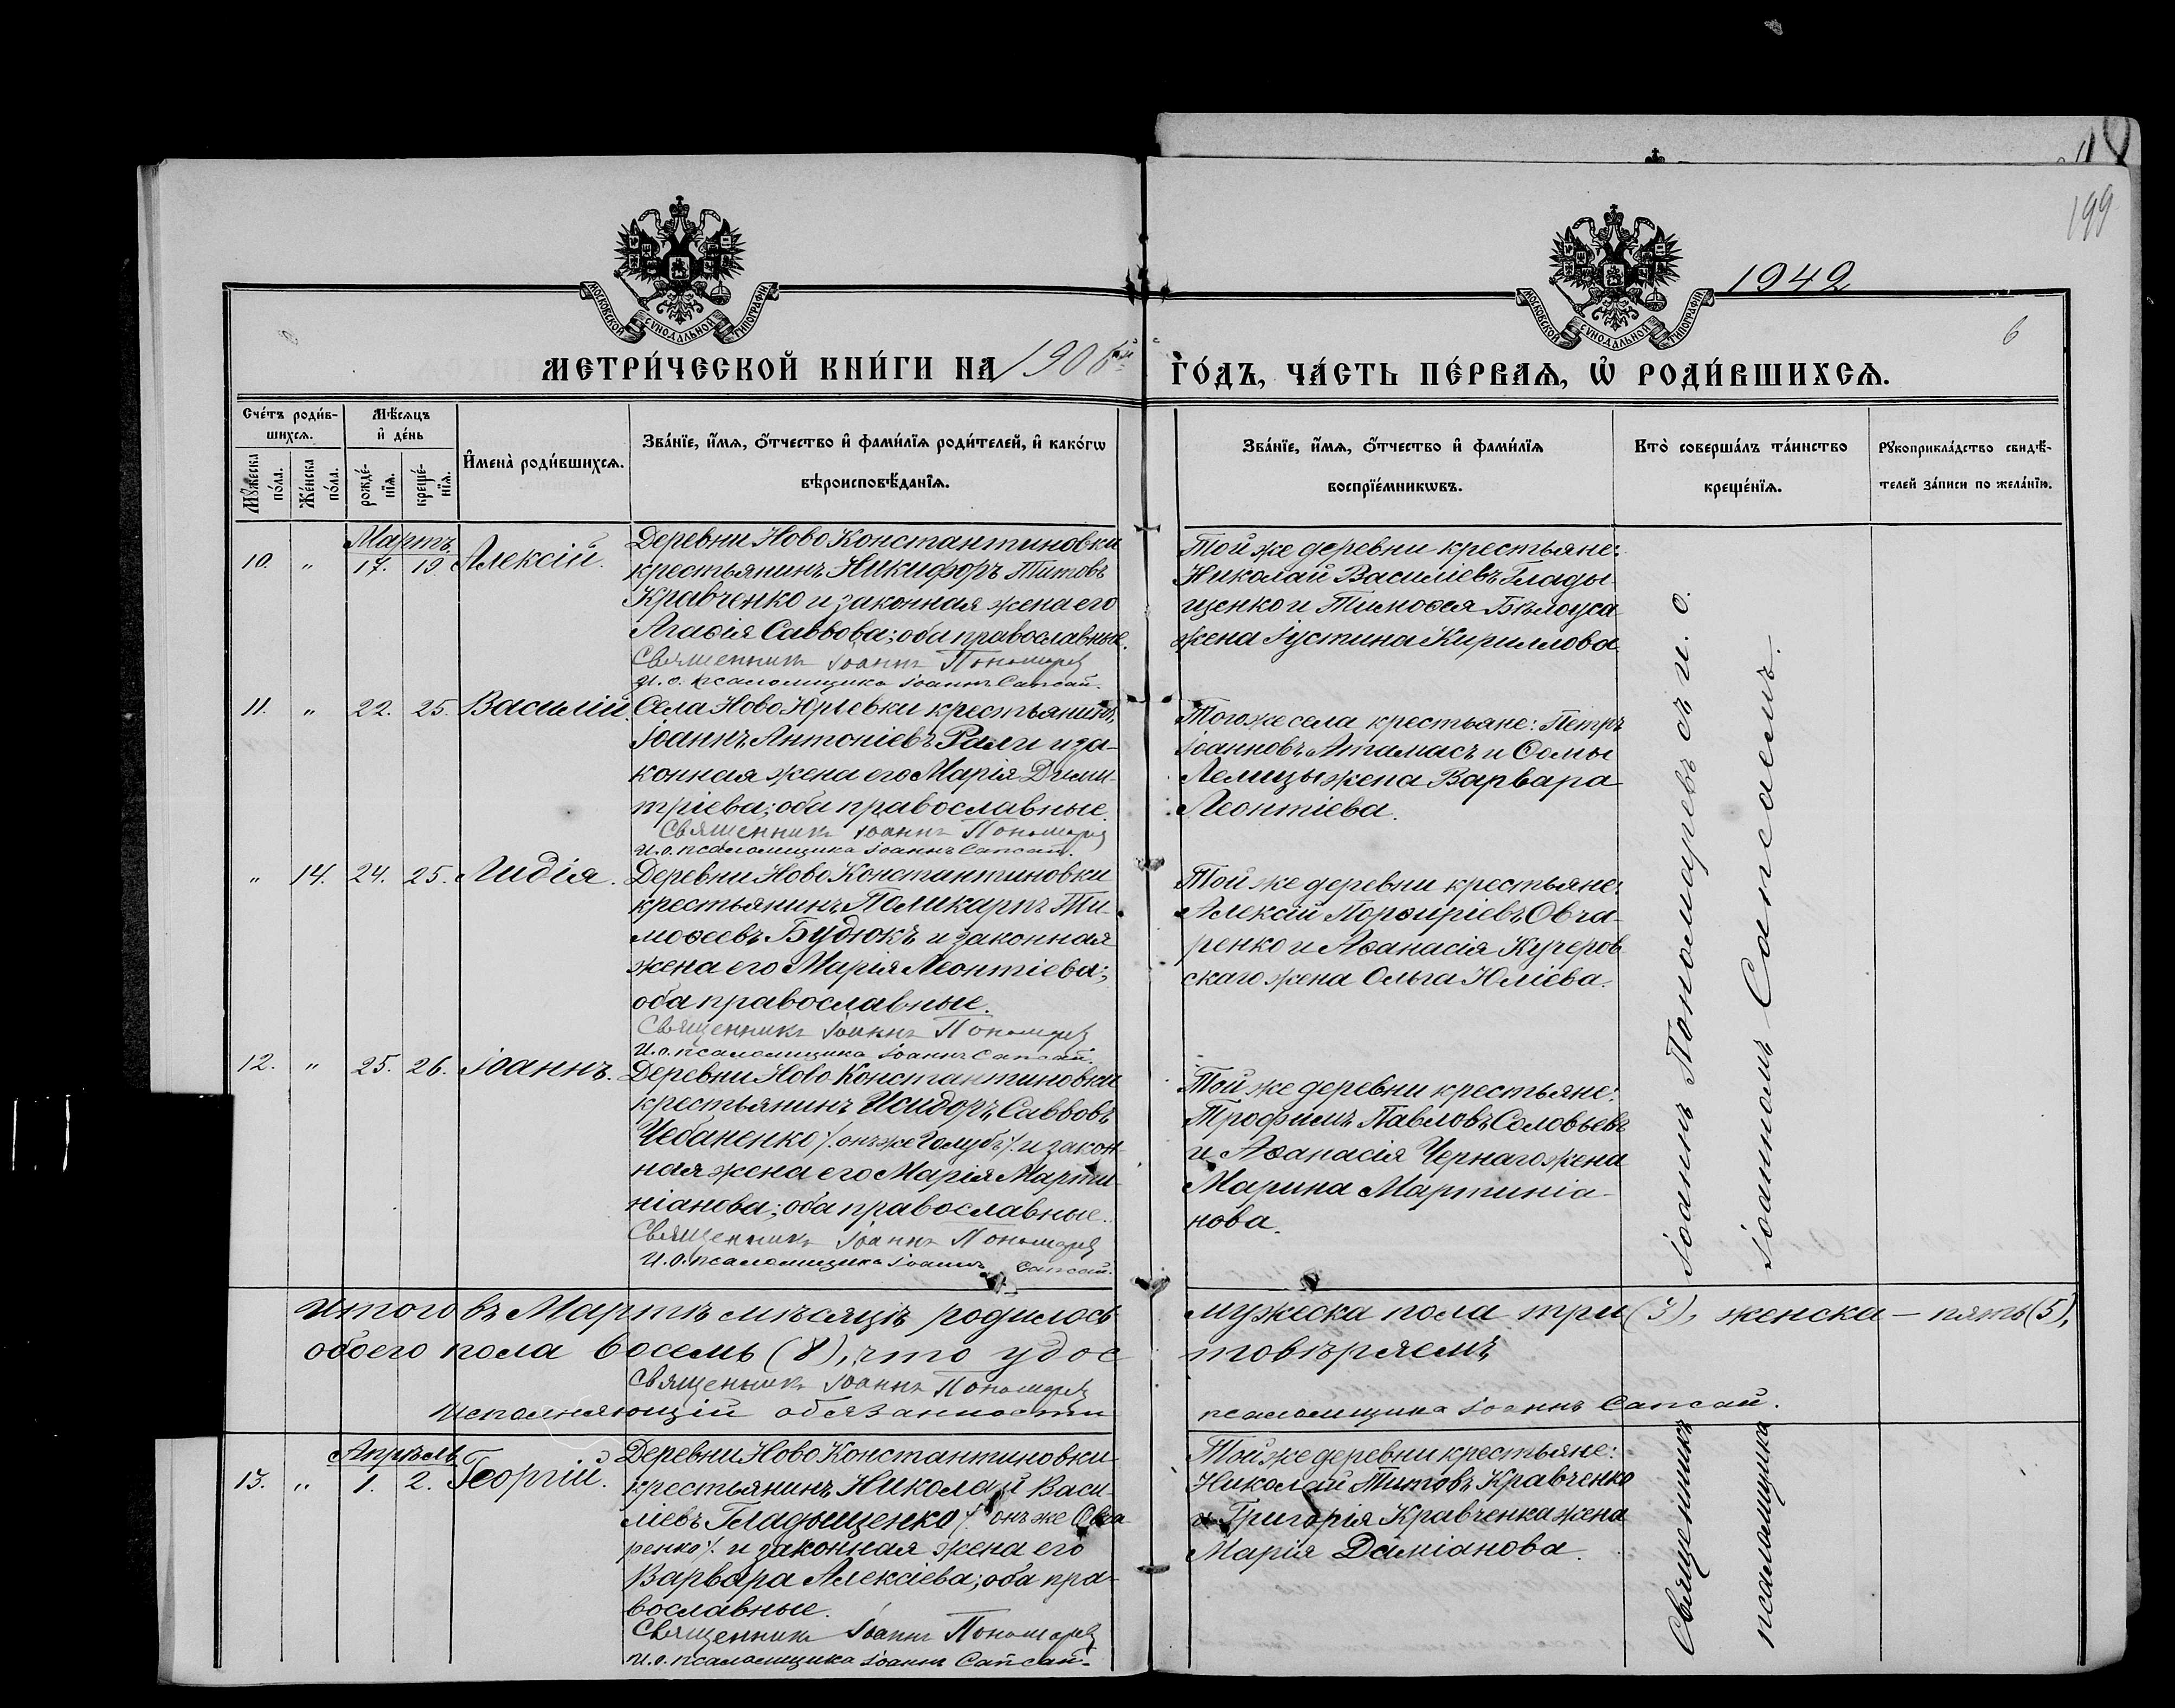 199
1942
6
МОСКОВСКОЙ СУНОДАЛЬНОЙ ТИПОГРАФІИ
МОСКОВСКОЙ СУНОДАЛЬНОЙ ТИПОГРАФІИ
МЕТРИ́ЧЕСКОЙ КНИ́ГИ НА 1906 ГО́ДЪ, ЧА́СТЬ ПЕ́РВАѦ, Ѡ҆ РОДИ́ВШИХСѦ.
Сче́тъ роди́в-
шихсѧ.
Мꙋ́жеска по́ла.
Же́нска по́ла.
Мѣ́сѧцъ
и҆ де́нь
рожде́-
нїѧ.
креще́-
нїѧ.
И҆мена̀ роди́вшихсѧ.
Зва́нїе, и҆́мѧ, ѻ҆́тчество и҆ фами́лїѧ роди́телей, и҆ како́гѡ
вѣроисповѣ́данїѧ.
Зва́нїе, и҆́мѧ, ѻ҆́тчество и҆ фами́лїѧ
воспрїе́мникѡвъ.
Кто̀ соверша́лъ та́инство
креще́нїѧ.
Рꙋкоприкла́дство свидѣ́-
телей за́писи по жела́нїю.
Мартъ
10. " 17. 19. Алексій.
Деревни Ново Константиновки
крестьянинъ Никифоръ Титовъ
Кравченко и законная жена его
Агаѳія Саввова; оба православные.
Священникъ Іоаннъ Пономарев
И. о. псаломщика Іоаннъ Сапсай.
Той же деревни крестьяне:
Николай Василіевъ Глады-
щенко и Тимоѳея Бѣлоуса
жена Іустина Кириллова
11. " 22. 25. Василій.
Села Ново Юрьевки крестьянинъ
Іоаннъ Антоніевъ Раяги и за-
конная жена его Марія Дими-
тріева; оба православные.
Священникъ Іоаннъ Пономарев
И. о. псаломщика Іоаннъ Сапсай.
Того же села крестьяне: Петръ
Іоанновъ Атамасъ и Ѳомы
Лемицы жена Варвара
Леонтіева.
" 14. 24. 25. Лидія.
Деревни Ново Константиновки
крестьянинъ Поликарпъ Ти-
моѳеевъ Будюкъ и законная
жена его Марія Леонтіева;
оба православные.
Священникъ Іоаннъ Пономарев
И. о. псаломщика Іоаннъ Сапсай.
Той же деревни крестьяне:
Алексій Порѳиріевъ Овча-
ренко и Аѳанасія Кучеров-
скаго жена Ольга Юліева.
12. " 25. 26. Іоаннъ.
Деревни Ново Константиновки
крестьянинъ Исидоръ Саввовъ
Чебаненко /. онъ же Голубъ /. и закон-
ная жена его Марія Марти-
ніанова; оба православные.
Священникъ Іоаннъ Пономарев
И. о. псаломщика Іоаннъ Сапсай.
Той же деревни крестьяне:
Трофимъ Павловъ Соловьевъ
и Аѳанасія Чернаго жена
Марина Мартиніа-
нова.
Итого въ Мартѣ мѣсяцѣ родилось мужеска пола три (3), женска — пять (5),
обоего пола восемь (8), что удостовѣряемъ
Священникъ Іоаннъ Пономарев
Исполняющій обязанности псаломщика Іоаннъ Сапсай.
Апрѣль
13. " 1. 2. Георгій.
Деревни Ново Константиновки
крестьянинъ Николай Васи-
ліевъ Гладыщенко /. онъ же Овча-
ренко /. и законная жена его
Варвара Алексіева; оба пра-
вославные.
Священникъ Іоаннъ Пономарев
И. о. псаломщика Іоаннъ Сапсай.
Той же деревни крестьяне:
Николай Титовъ Кравченко
и Григорія Кравченка жена
Марія Даміанова.
Священникъ Іоаннъ Пономаревъ съ и. о.
псаломщика Іоанномъ Сапсаемъ.